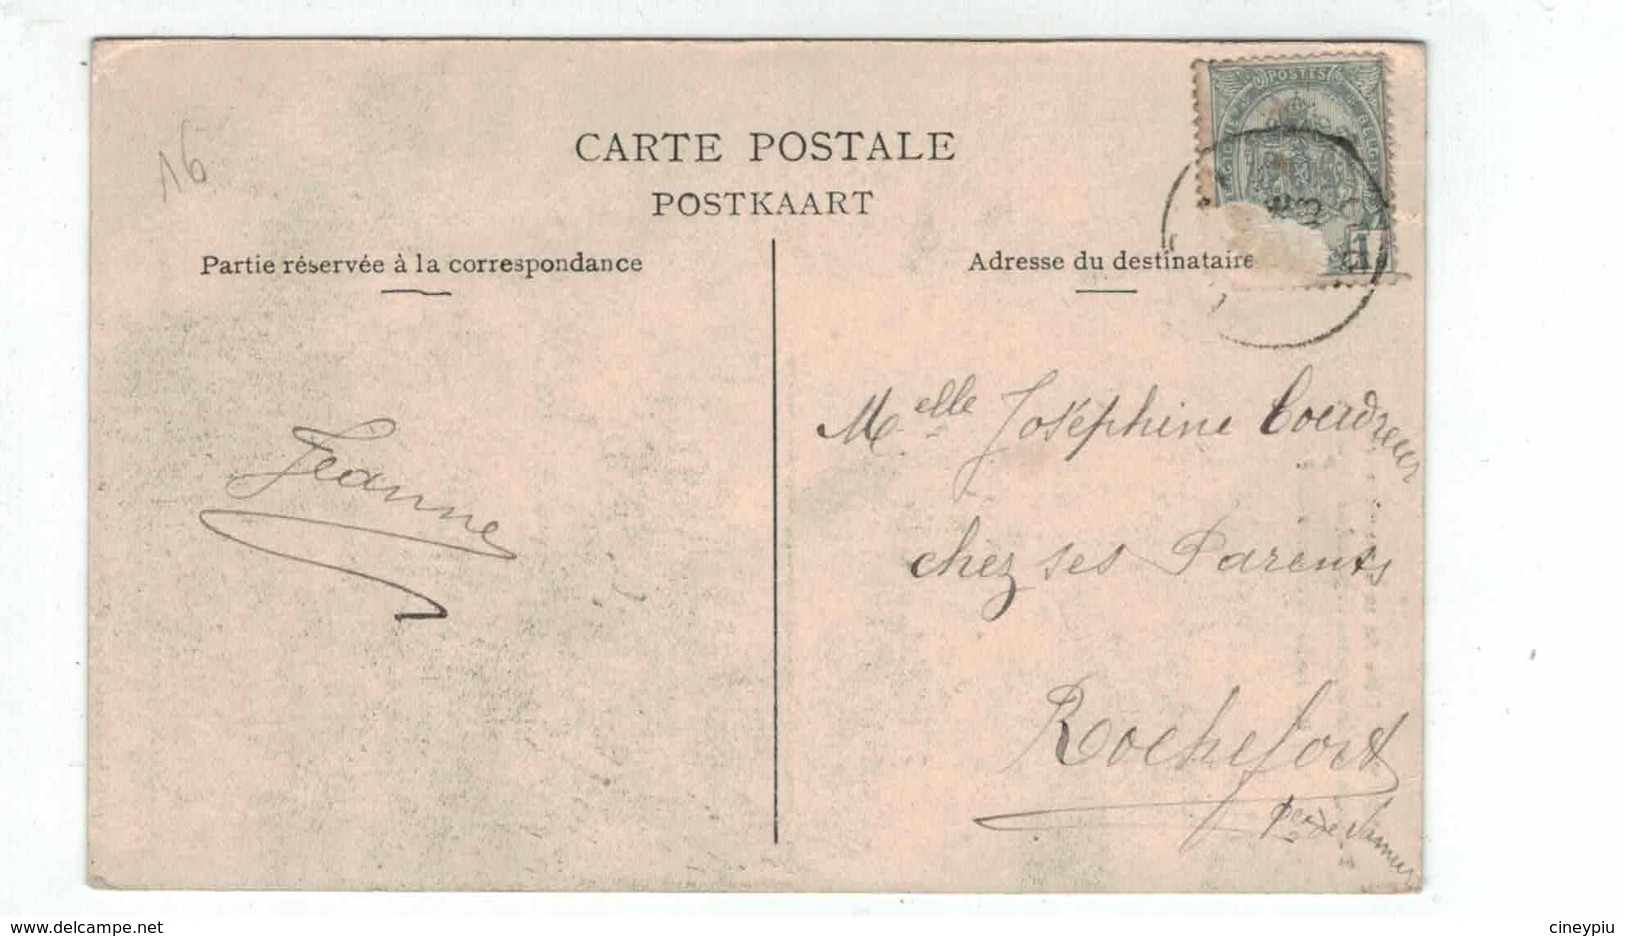 16
CARTE POSTALE
POSTKAART
POSTES
Partie réservée à la correspondance
Adresse du destinataire
Jeanne
Melle Joséphine Coudreur
chez ses Parents
Rochefort
Pce de Namur
www.delcampe.net
cineypiu